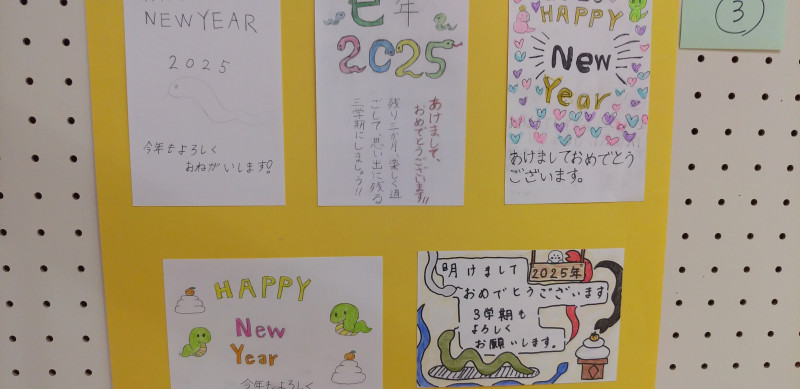 NEW YEAR
2025
今年もよろしく
おねがいします!
巳年
2025
あけまして、
おめでとうございます!!
残り三か月、楽しく過
ごして、思い出に残る
三学期にしましょう!!
HAPPY
New
Year
あけましておめでとう
ございます。
③
HAPPY
New
Year
今年もよろしく
明けまして
2025年
おめでとうございます
3学期も
よろしく
お願いします。